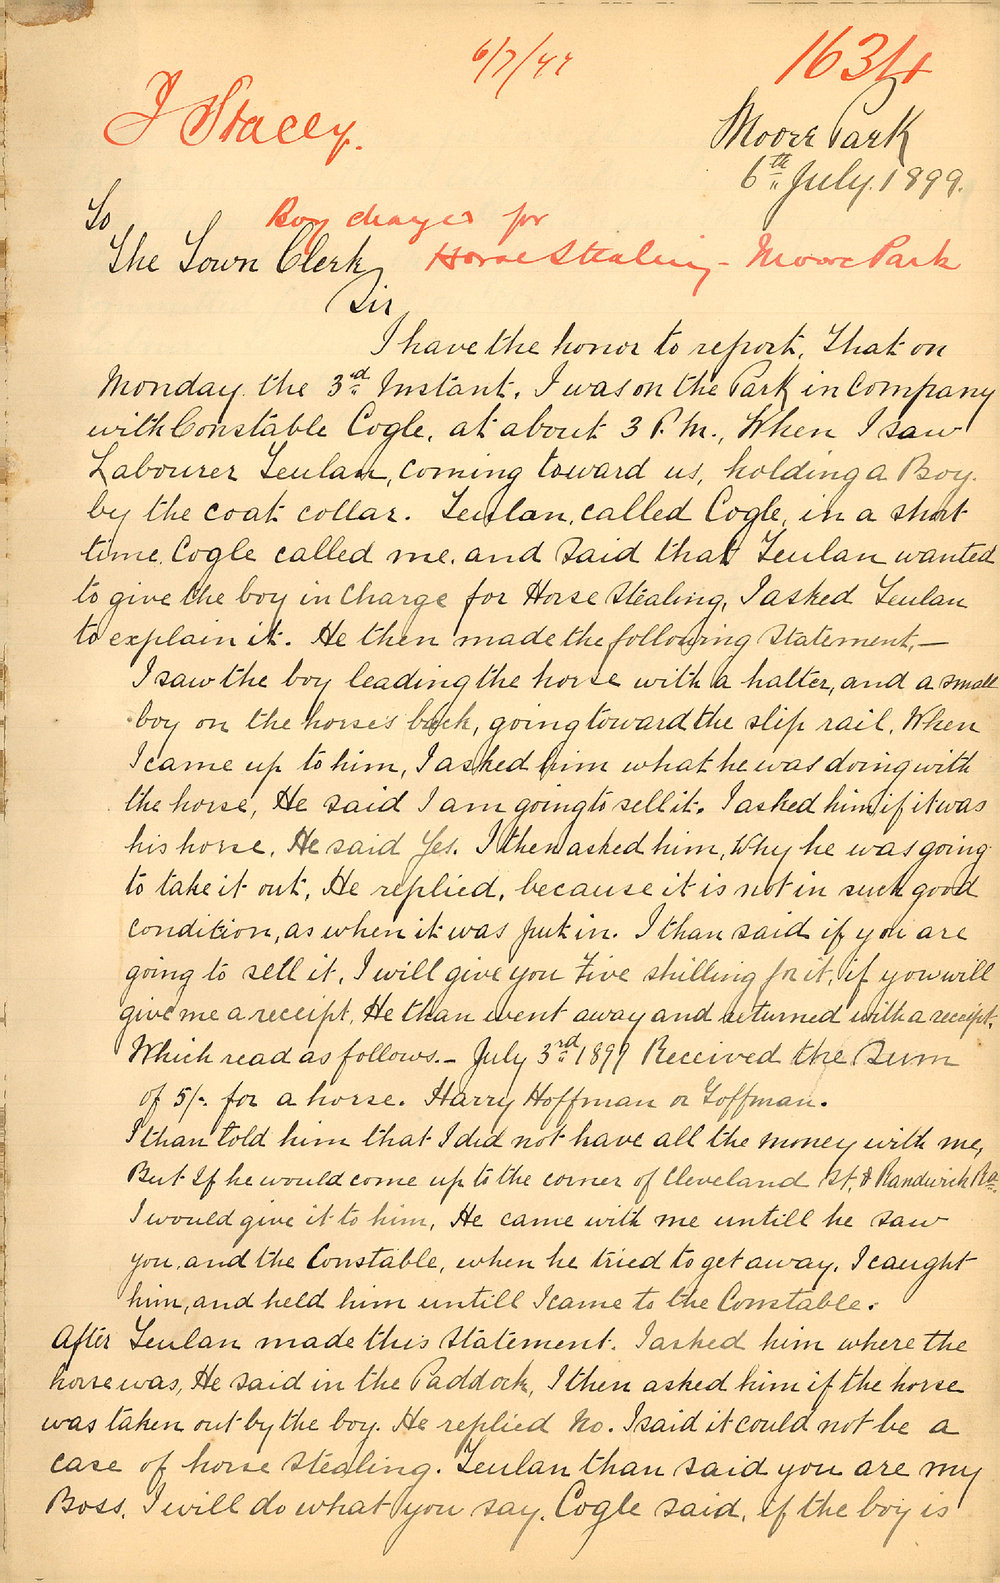 6/7/99
1634
J Stacey.
Moore Park
6th July. 1899.
To
Boy charged for
The Town Clerk,
Horse Stealing - Moore Park
Sir,
I have the honor to report, that on
Monday the 3rd Instant. I was on the Park in Company
with Constable Cogle, at about 3 P.M., When I saw
Labourer Leulan, coming toward us, holding a Boy.
by the coat collar. Leulan, called Cogle, in a short
time, Cogle called me, and said that Leulan wanted
to give the boy in Charge for Horse stealing, I asked Leulan
to explain it. He then made the following Statement,—
I saw the boy leading the horse with a halter, and a small
boy on the horse's back, going toward the slip rail, When
I came up to him, I asked him what he was doing with
the horse, He said I am going to sell it. I asked him if it was
his horse. He said Yes. I then asked him, Why he was going
to take it out, He replied, because it is not in such good
condition, as when it was put in. I than said if you are
going to sell it, I will give you Five shilling for it, if you will
give me a receipt, He than went away and returned with a receipt,
Which read as follows.— July 3rd 1899 Received the Sum
of 5/-. for a horse. Harry Hoffman or Goffman.
I than told him that I did not have all the money with me,
But If he would come up to the corner of Cleveland St, & Randwick Rd.
I would give it to him, He came with me untill he saw
you, and the Constable, when he tried to get away, I caught
him, and held him untill I came to the Constable.
After Leulan made this statement. I asked him where the
horse was, He said in the Paddock, I then asked him if the horse
was taken out by the boy. He replied No. I said it could not be a
case of horse stealing. Leulan than said you are my
Boss, I will do what you say, Cogle said, if the boy is